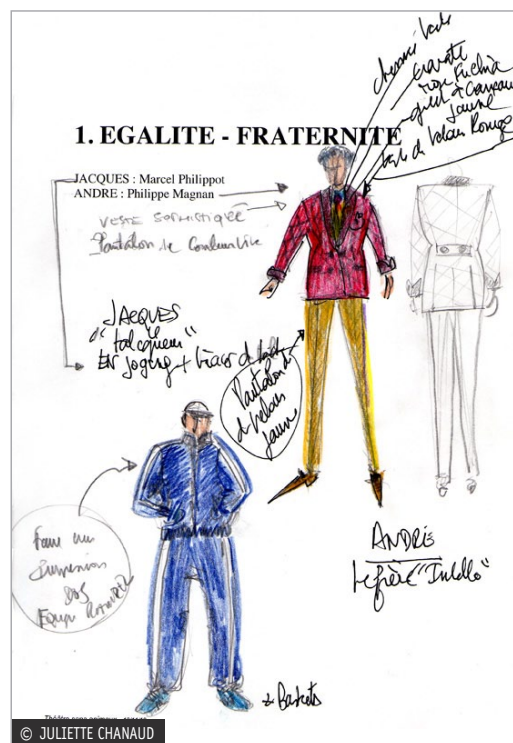 chemise verte
cravate
rose Fuchia
à carreaux
jaune
veste de velours Rouge
1. EGALITE - FRATERNITE
JACQUES : Marcel Philippot
ANDRE : Philippe Magnan
VESTE SOPHISTIQUÉE
Pantalon de couleur vive
JACQUES
le
EN jogging +
Pantalon
de velours
jaune
Faire une
ANDRÉ
Le frère "Intello"
+ Baskets
© JULIETTE CHANAUD